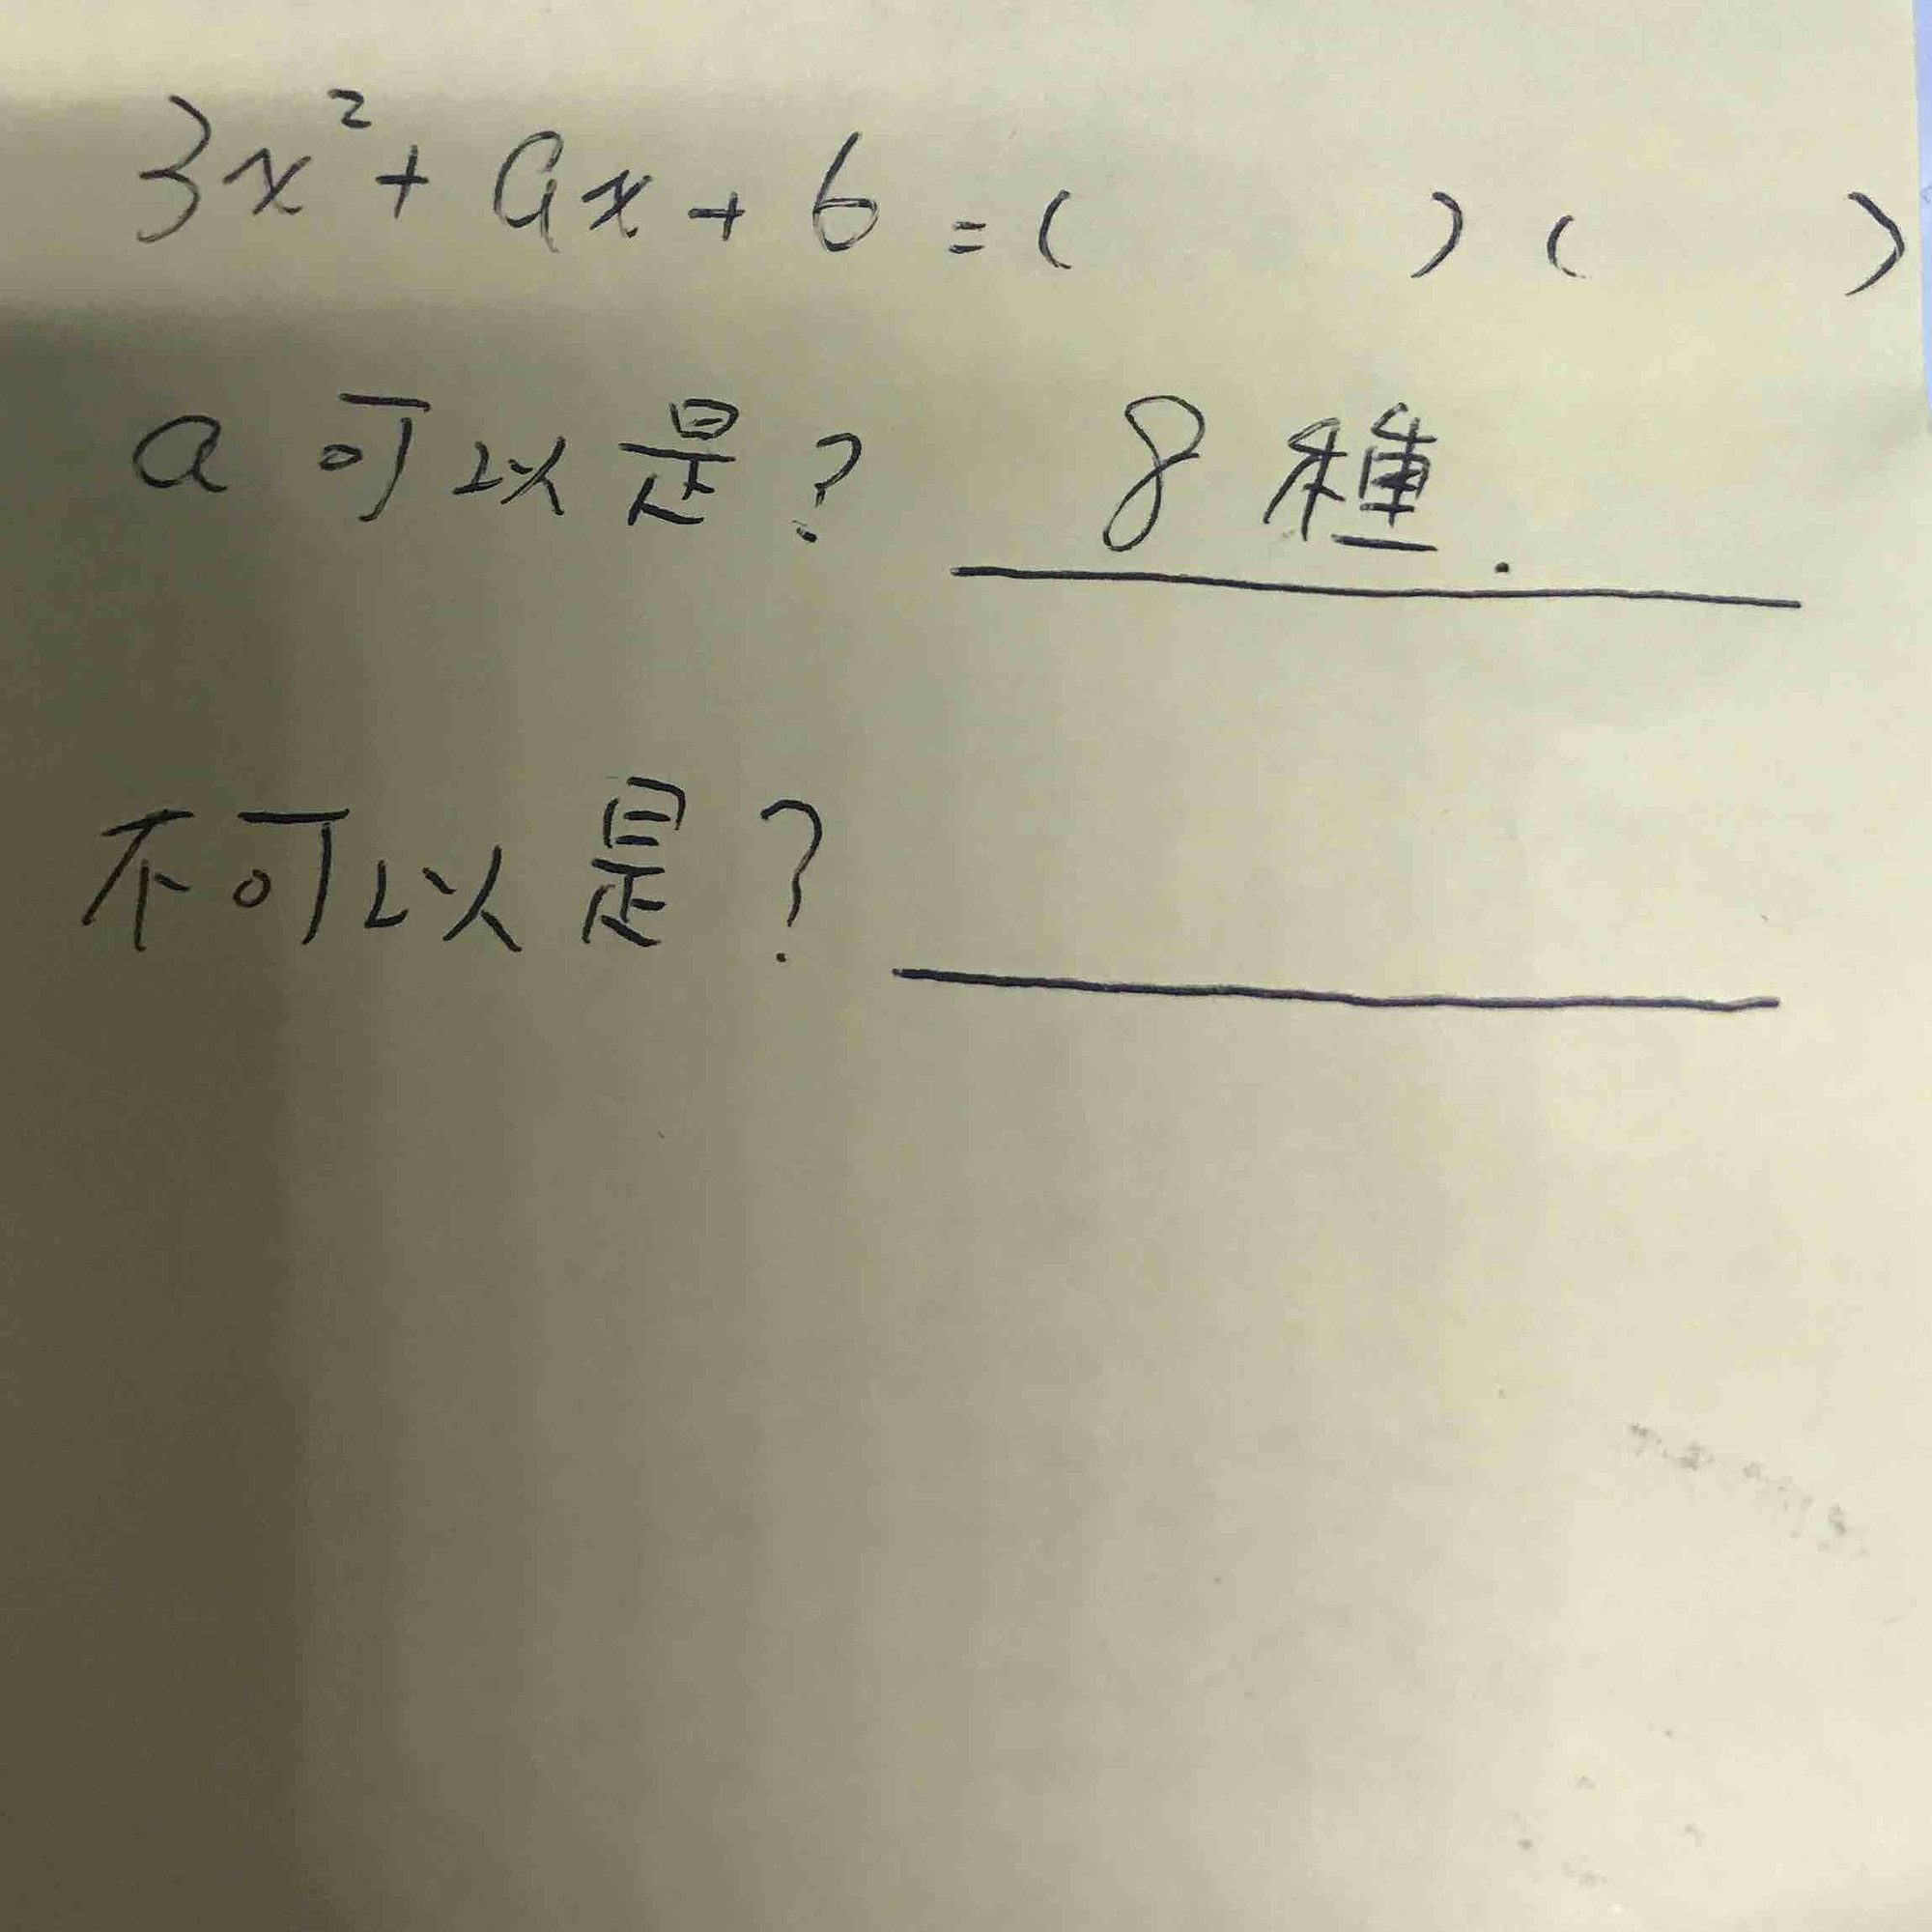 3x²+ax+6=( )( )
a可以是? 8種.
不可以是?